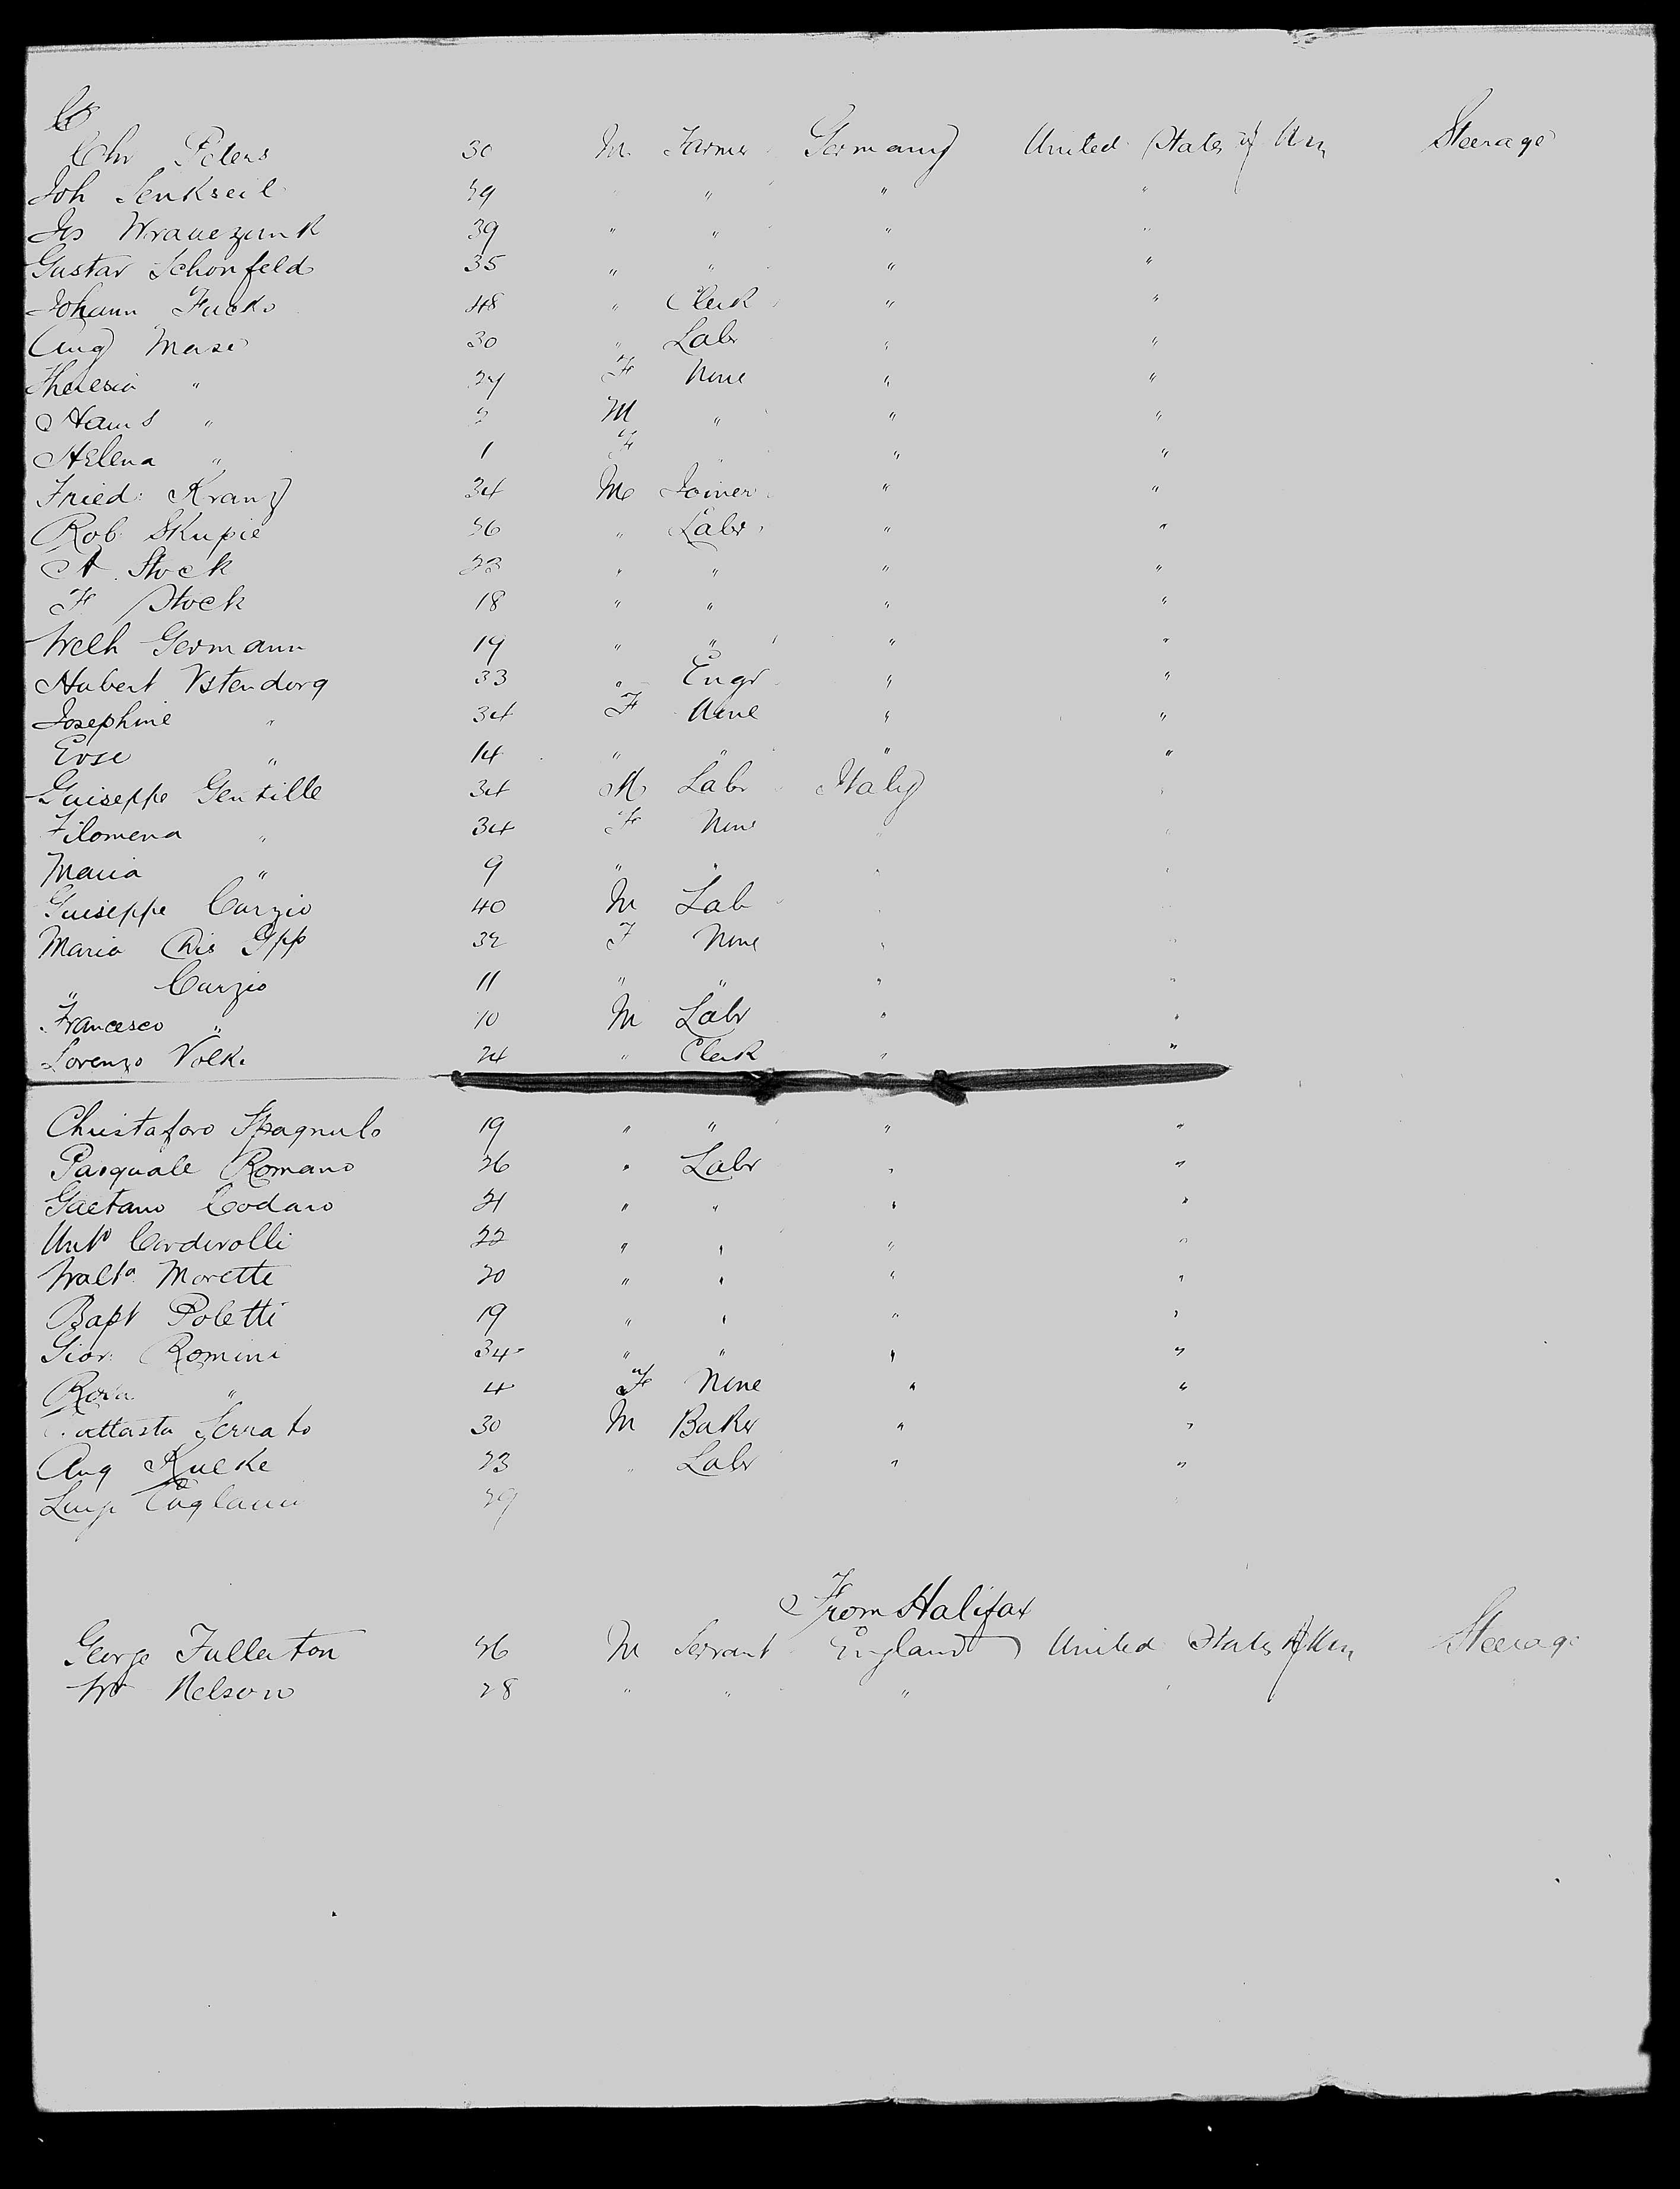 Chr Peters 30 M Farmer Germany United States of Am Steerage
Joh Senkseil 29 " " " "
Js Wrauezunk 39 " " " "
Gustav Schonfeld 35 " " " "
Johann Fucks 48 " Clerk " "
Aug Mase 30 " Labr " "
Theresia " 24 F None " "
Hans " M " " "
Helena " 1 F " " "
Fried: Kranz 34 M Joiner " "
Rob. Skupie 26 " Labr " "
A. Stock 23 " " " "
F Stock 18 " " " "
Welh Germann 19 " " " "
Hubert Ostendorg 33 " Engr " "
Josephine " 34 F None " "
" 14 " " " "
Guiseppe Gentille 34 M Labr Italy "
Filomena " 34 F None " "
Maria " 9 " " " "
Guiseppe Curzio 40 M Lab " "
Maria Gpp 32 F None " "
" Curzio 11 " " " "
Francesco " 10 M Labr " "
Lorenzo Volke 24 " Clerk " "
Christaforo Spagnulo 19 " " " "
Pasquale Romano 26 " Labr " "
Gaetano Codaro 21 " " " "
Anto Corderolli 22 " " " "
Walta Morette 20 " " " "
Bapt Poletti 19 " " " "
Giov: Romini 34 " " " "
Rosa " 4 F None " "
Serrato 30 M Baker " "
Aug Kueke 23 " Labr " "
Luigi 29 "
From Halifax
George Fullerton 26 M Servant England United States of Am Steerage
Wm Nelson 28 " " " "